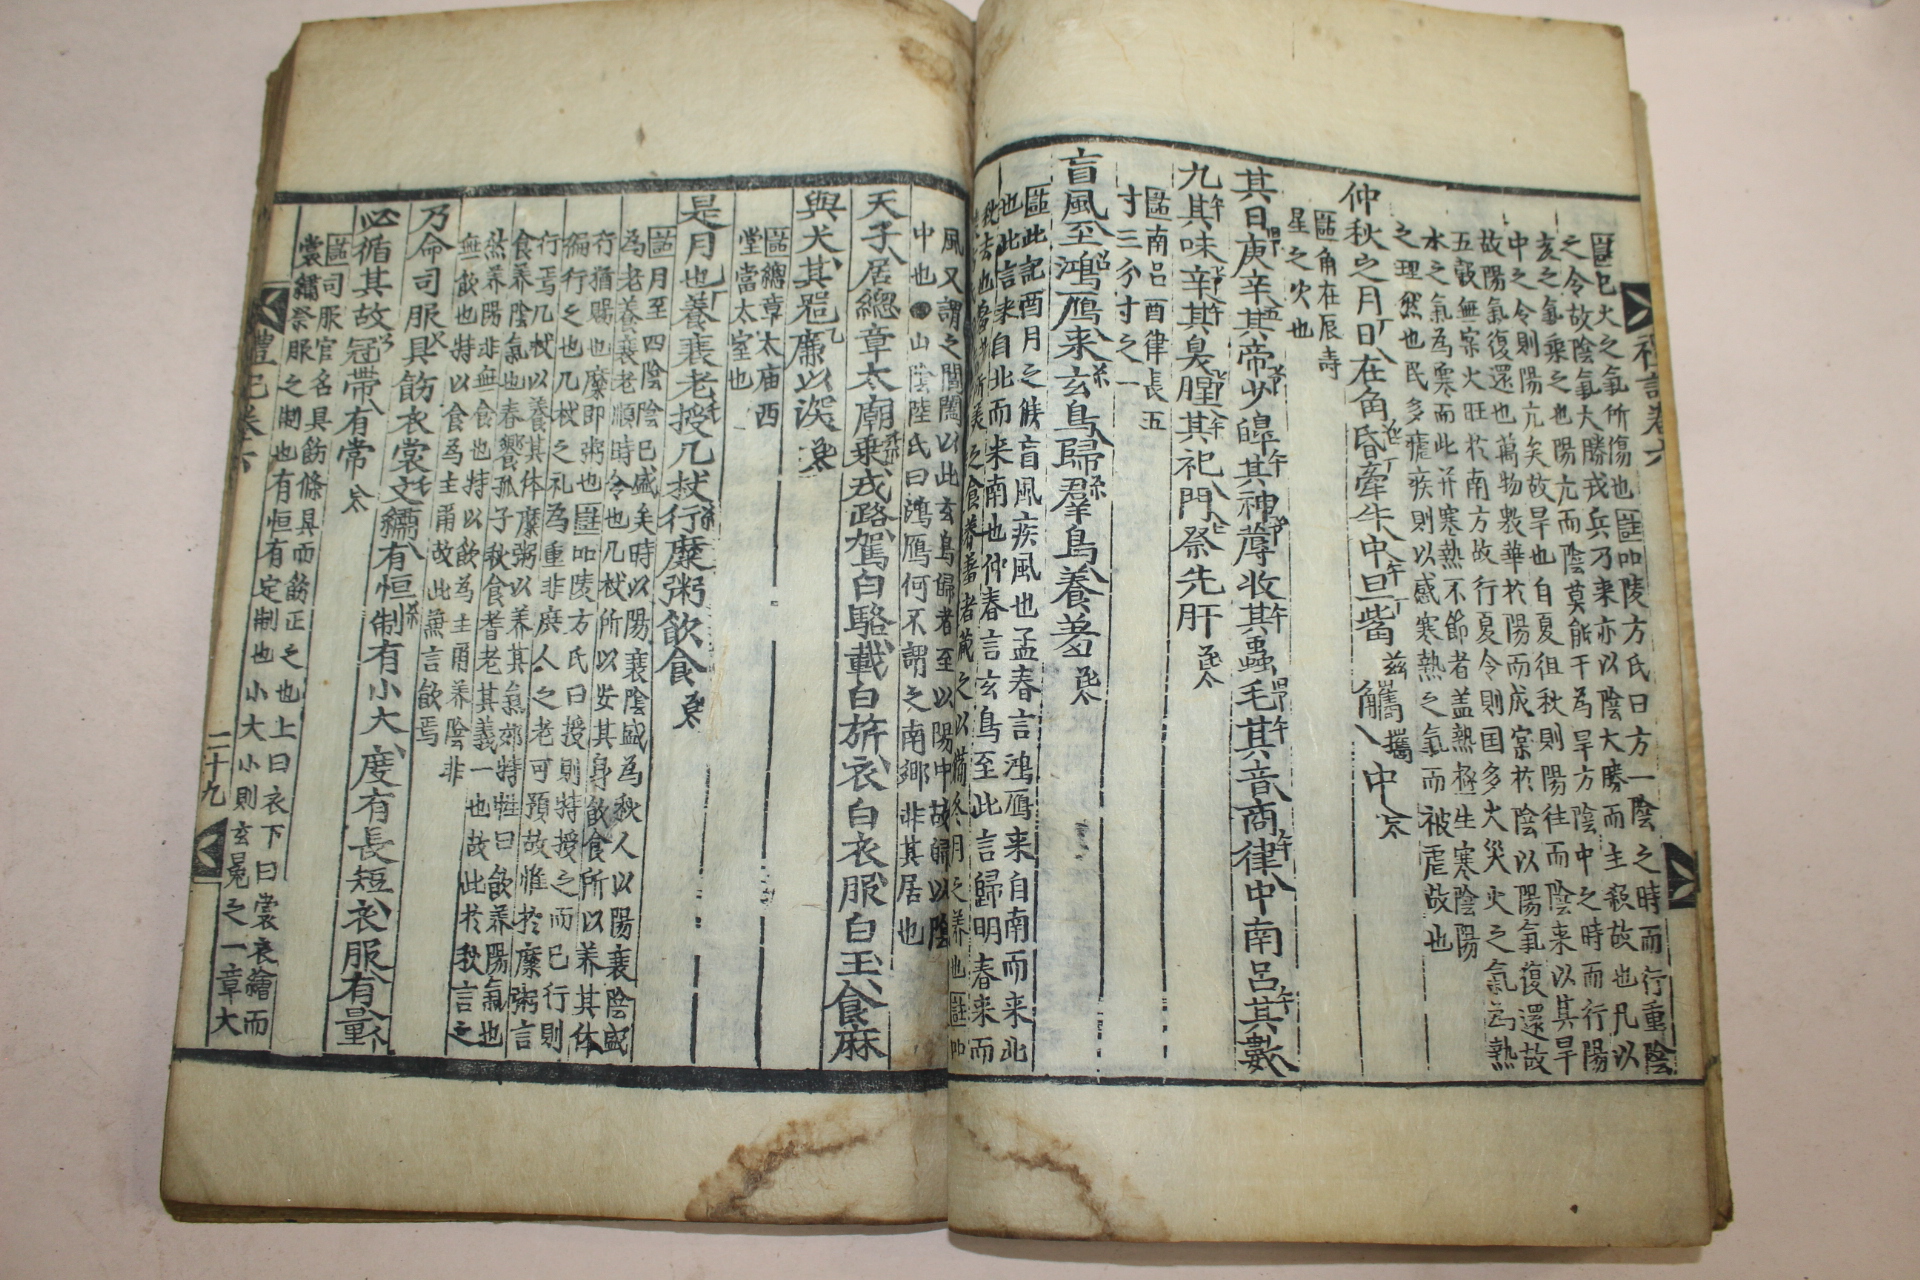 巳火之氣所傷也註吅陵方氏曰方一陰之時而行重陰
之令故陰氣大勝戎兵乃来亦以陰大勝而主殺故也凡以
亥之氣乘之也陽亢而陰莫能干為旱方陰中之時而行陽
中之令則陽亢矣故旱也自夏徂秋則陽往而陰来以其旱
故陽氣復還也萬物敷華於陽而成实於陰以陽氣復還故
五穀無实火旺於南方故行夏令則囯多火災火之氣為熱
水之氣為寒而此并寒熱不節者盖熱極生寒陰陽
之理然也民多瘧疾則以感寒熱之氣而被虐故也
仲秋之月日在角昏牽牛中旦觜觿中
角在辰壽
星之次也
其日庚辛其帝少皥其神蓐收其蟲毛其音商律中南呂其數
九其味辛其臭腥其祀門祭先肝
註南呂酉律長五
寸三分寸之一
盲風至鴻鴈来玄鳥歸羣鳥養羞
註此記酉月之候盲風疾風也孟春言鴻鴈来自南而来北
也此言来自北而来南也仲春言玄鳥至此言歸明春来而
秋去也羞者所美之食養羞者藏之以備冬月之养也註吅
風又謂之閶闔以此玄鳥歸者至以陽中故歸以陰
中也●山陰陸氏曰鴻鴈何不謂之南鄉非其居也
天子居總章太廟乗戎路駕白駱載白旂衣白衣服白玉食麻
與犬其噐廉以深
註總章太庙西
堂當太室也
是月也養衰老授几杖行糜粥飲食
註月至四陰陰已盛矣時以陽衰陰盛為秋人以陽衰陰盛
為老養衰老順時令也几杖所以安其身飲食所以养其体
行猶賜也糜即粥也註吅陵方氏曰授則特授之而已行則
徧行之也几杖之礼為重非庶人之老可預故惟於糜粥言
行焉几杖以養其体糜粥以养其氣郊特牲曰飲养陽氣也
食养陰氣也春饗孤子秋食耆老其義一也故此於秋言之
然养陽非無食也特以飲為主甬养陰非
無飲也特以食為主甬故此兼言飲焉
乃命司服具飭衣裳文繡有恒制有小大度有長短衣服有量
必循其故冠帶有常
註司服官名具飭條具而飭正之也上曰衣下曰裳衣繪而
裳繡祭服之制也有恒有定制也小大小則玄冕之一章大
禮記卷六
二十九